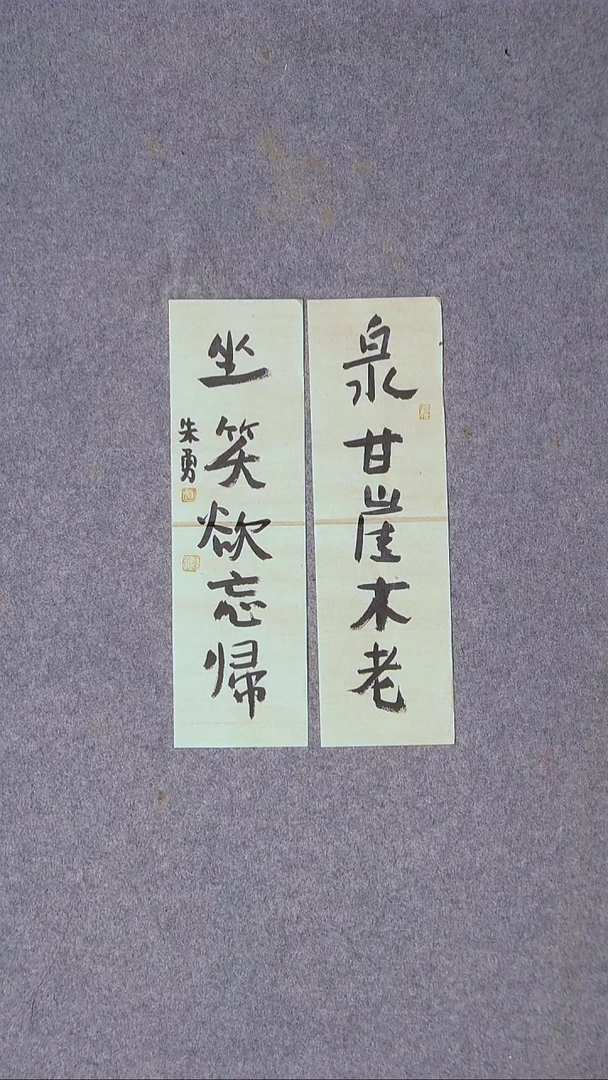 泉甘崖木老
坐笑欲忘帰
朱勇